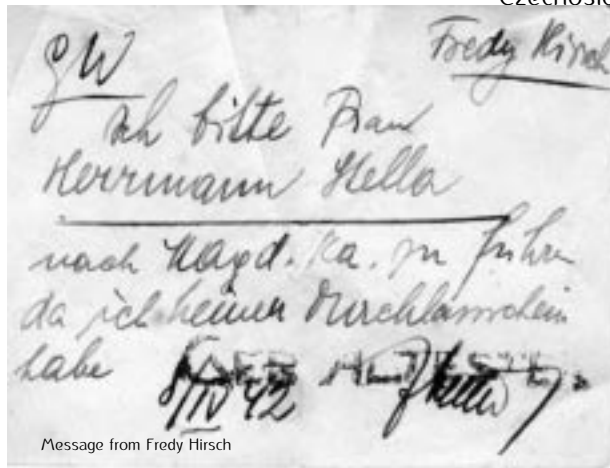 Fredy Hirsch
GW
Ich bitte Frau
Herrmann Stella
nach Magd. Ka. zu führen
da ich keinen Durchlassschein
habe
8/IV 42
Message from Fredy Hirsch